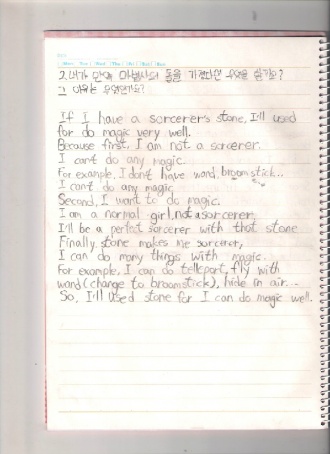 2. 내가 만약 마법사의 돌을 가졌다면 무엇을 할까요?
그 이유는 무엇인가요?
If I have a sorcerer's stone, I'll used
for do magic very well.
Because first, I am not a sorcerer.
I can't do any magic.
For example, I don't have wand, broomstick...
I can't do any magic
Second, I want to do magic.
I am a normal girl, not a sorcerer,
I'll be a perfect sorcerer with that stone
Finally stone makes me sorcerer,
I can do many things with magic...
For example, I can do teleport, fly with
wand (change to broomstick), hide in air...
So, I'll used stone for I can do magic well.